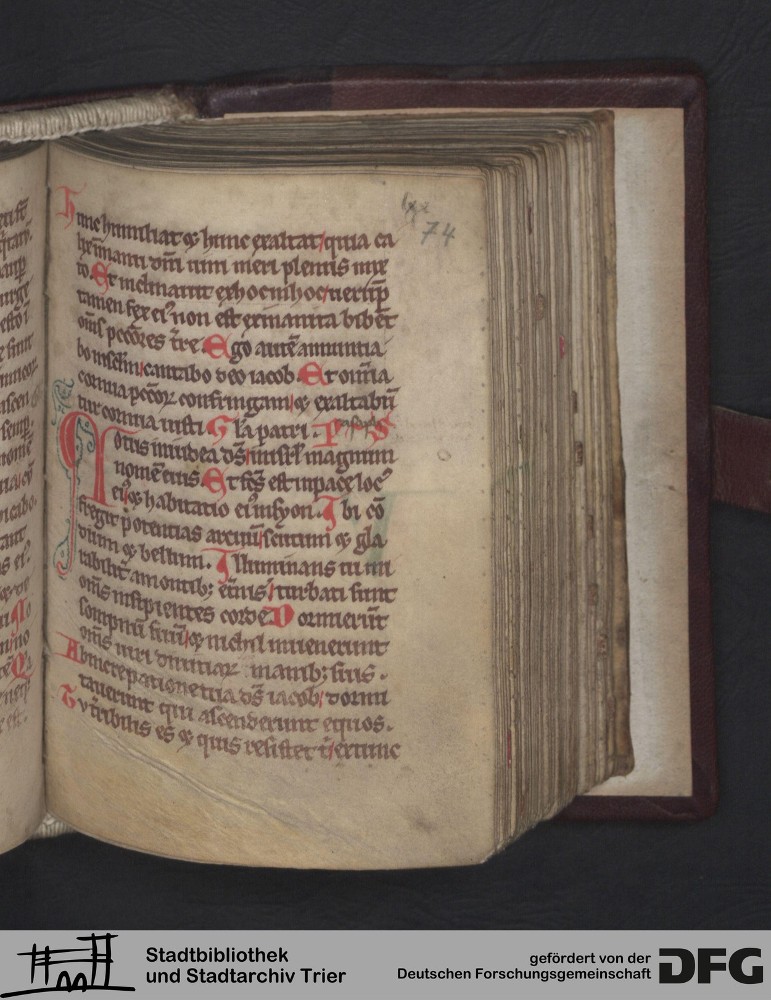 lxx
74
hunc humiliat ⁊ hunc exaltat quia ca
lix in manu dn̄i uini meri plenus mix
to. Et inclinauit ex hoc in hoc uerūp̄
tamen fex ei⁹ non est exinanita bibēt
om̄s peccōres t̄re. Ego autē annuntia
bo in sc̄lm̄ cantabo deo iacob. Et om̄ia
cornua pecc̄oꝝ confringam ⁊ exaltabū
tur cornua iusti. Gl̄a patri. Ps
Notus in iudea ds̄ in isrl̄ magnum
nomē eius. Et fc̄s est in pace loc⁹
ei⁹ ⁊ habitatio ei⁹ in syon. Ibi cō
fregit potentias arcuū scutum ⁊ gla
dium ⁊ bellum. Illuminans tu mi
rabilit̄ a montib; et̄nis turbati sunt
om̄s insipientes corde Dormierūt
sompnū suū ⁊ nichil inuenerunt
om̄s uiri diuitiaꝝ manib; suis.
Ab increpatione tua ds̄ iacob dormi
tauerunt qui ascenderunt equos.
Tu t̄ribilis es ⁊ quis resistet t̄ ex tunc
Stadtbibliothek
und Stadtarchiv Trier
gefördert von der
Deutschen Forschungsgemeinschaft
DFG